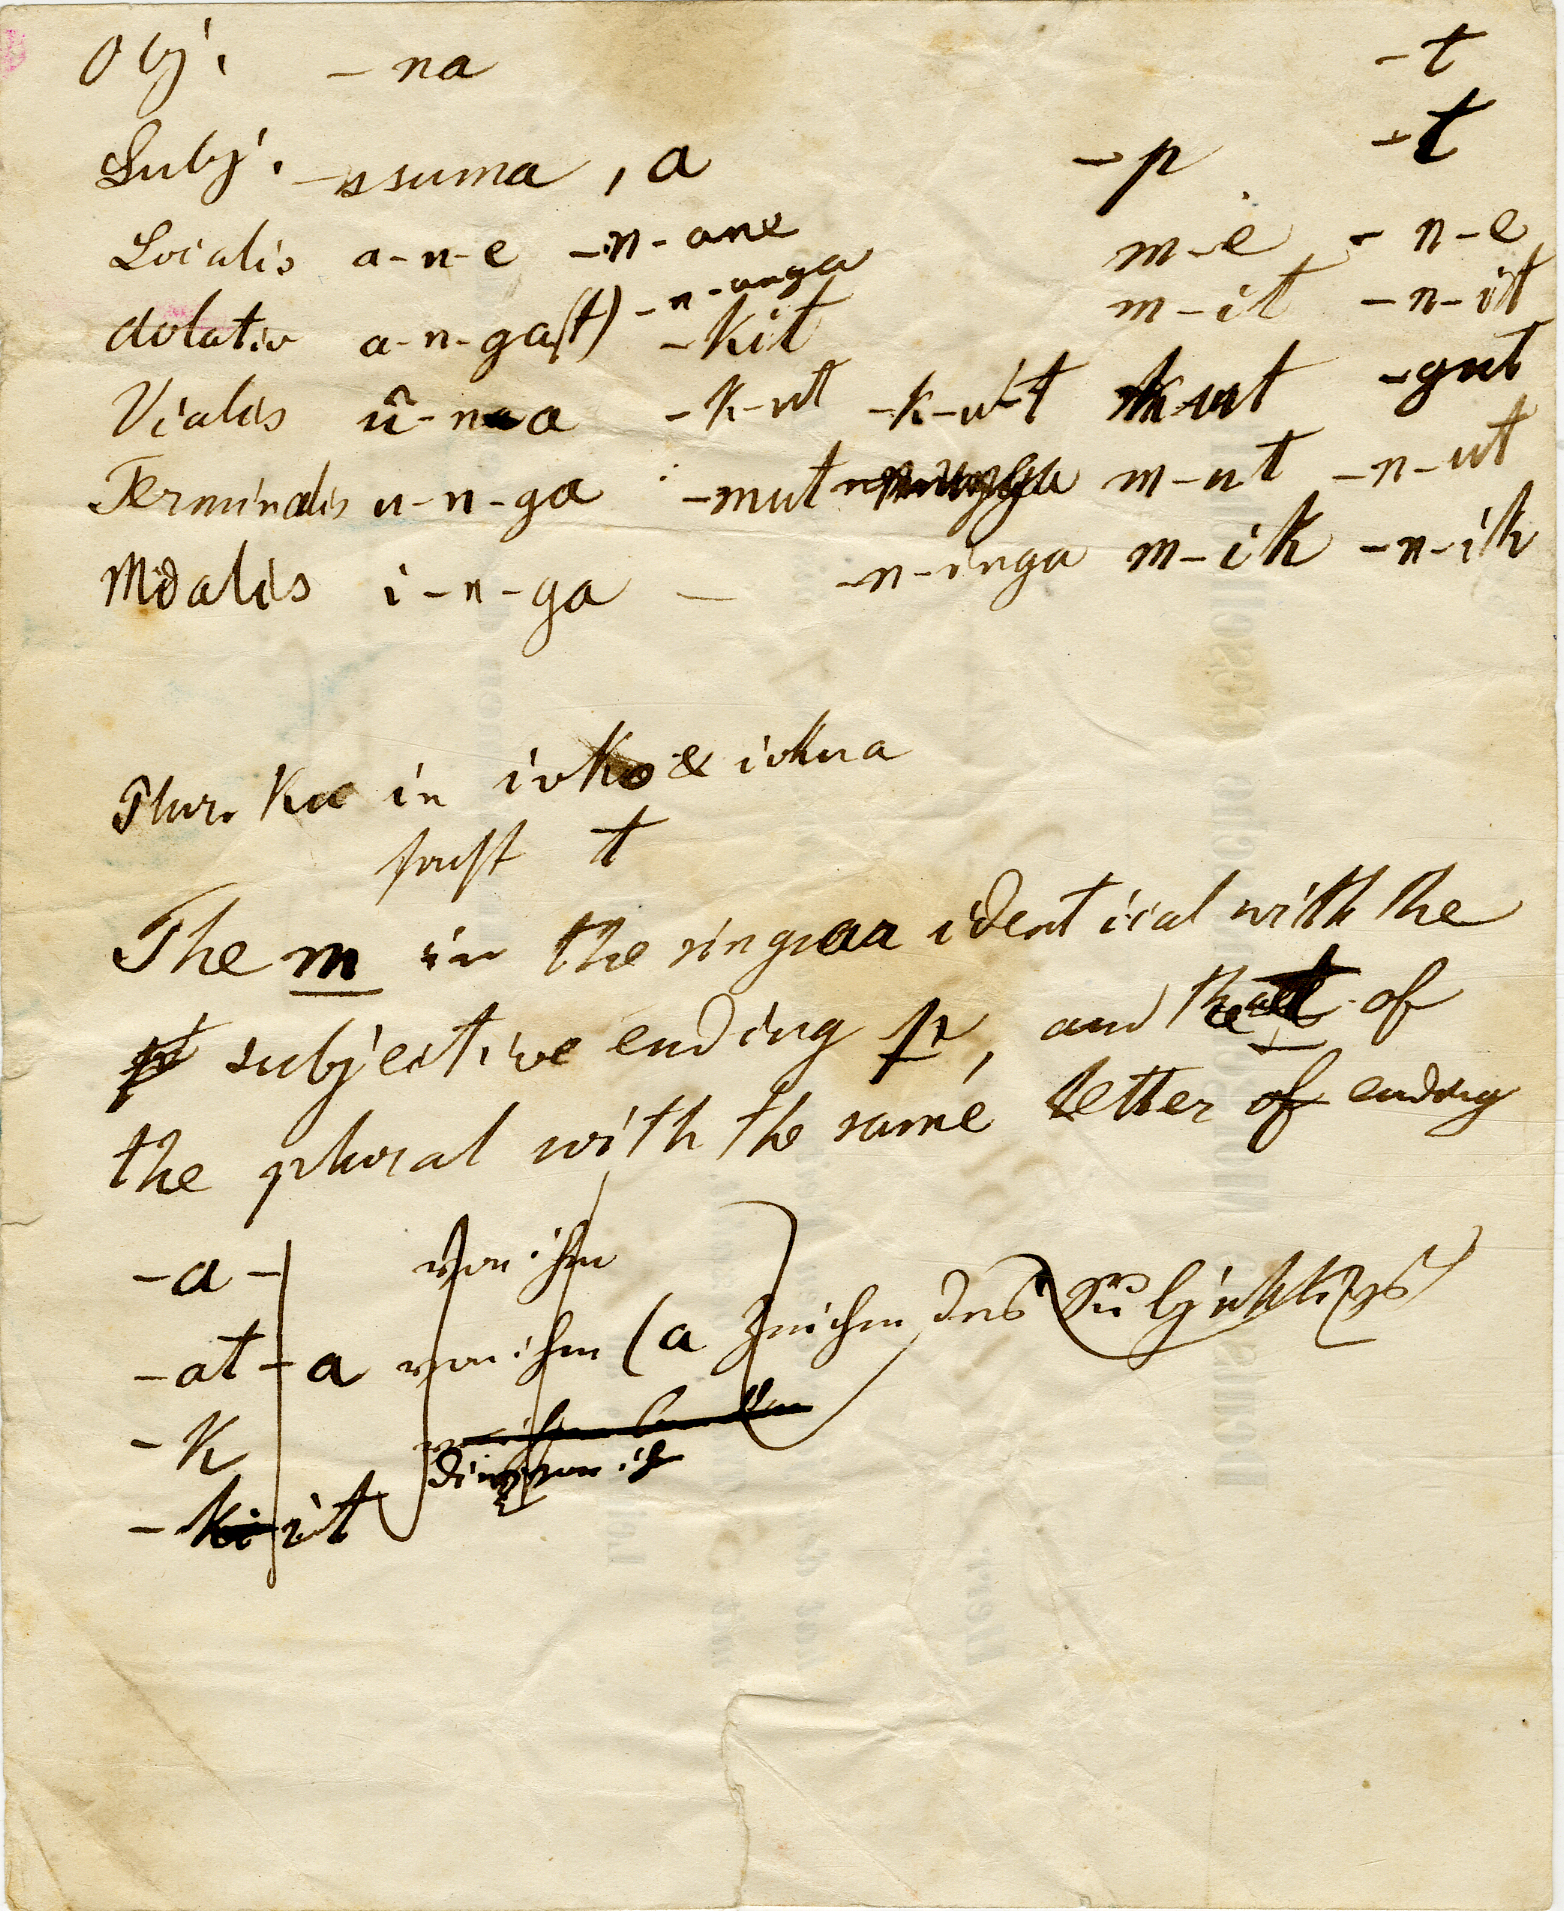 Obj. – na – t
Subj. – ssuma , a – p – t
Localis a-n-e – n-ane m-e – n-e
Ablativ a-n-ga(t) – n-anga
– kit m-it – n-it
Vialis û-na – k-ut – k-u-t kut – gut
Terminalis u-n-ga – mut m-ut – n-ut
Modalis i-n-ga – – n-inga m-ik – n-ik
Plur. ku in ivko & ivkua
sonst t
The m in the singular identical with the
subjective ending p, and that of
the plural with the same letter of ending
– a – von ihm
– at – a von ihm (a Zeichen des Subjektivs)
– k
– ki it